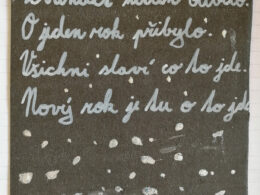 O jeden rok přibylo.
Všichni slaví co to jde.
Nový rok je tu o to jde